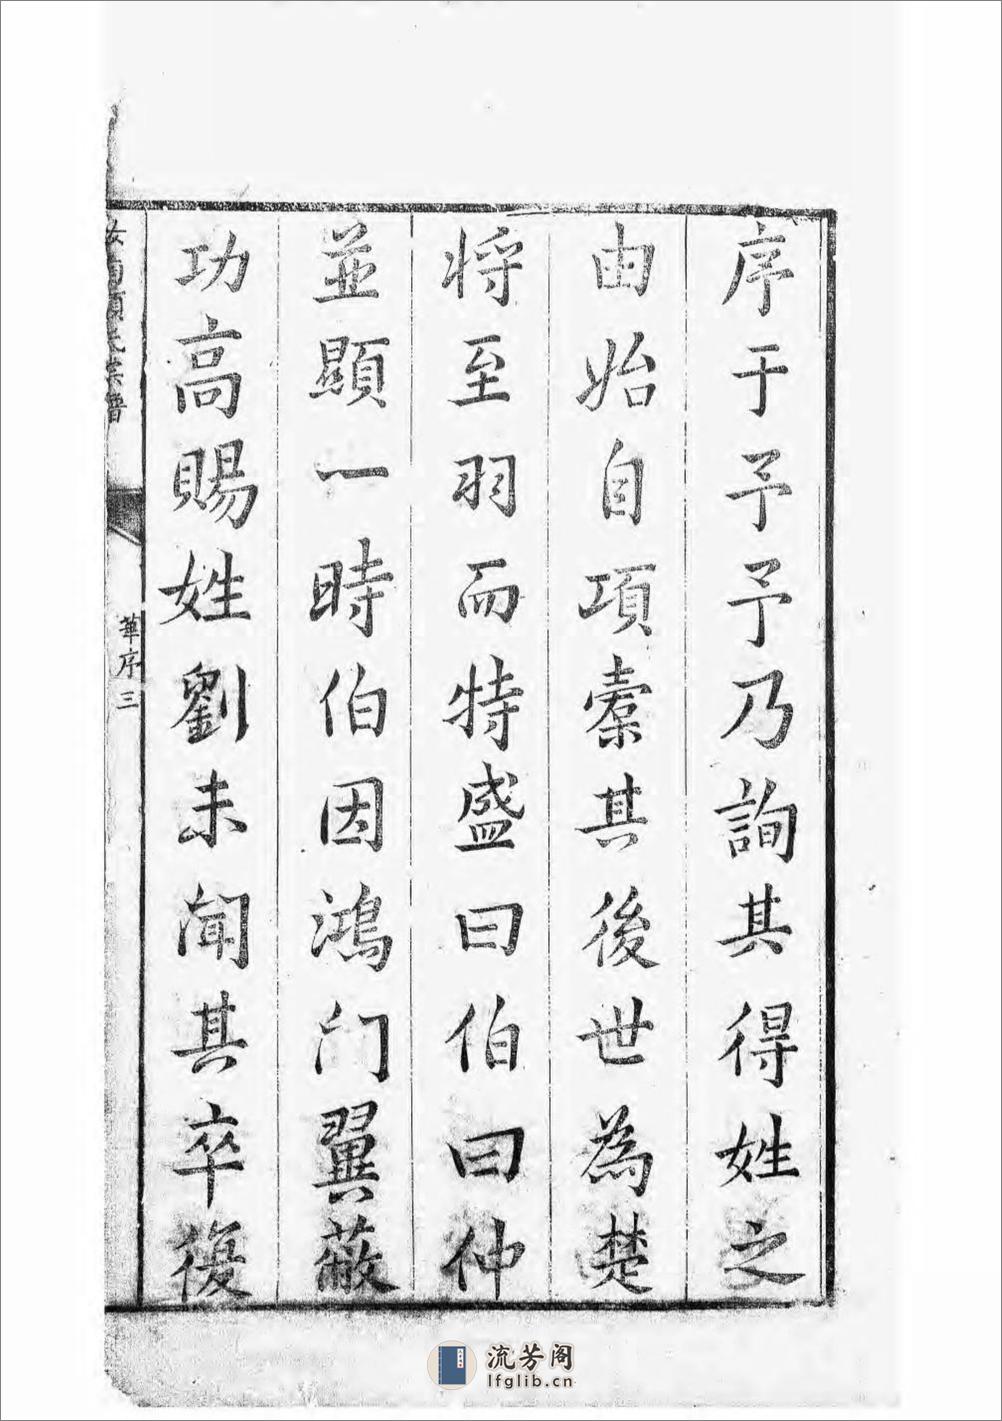 序于予予乃詢其得姓之
由始自項橐其後世為楚
将至羽而特盛曰伯曰仲
並顯一時伯因鴻门翼蔽
功高賜姓劉未聞其卒復
氏宗譜
華序 三
流芳阁
lfglib.cn